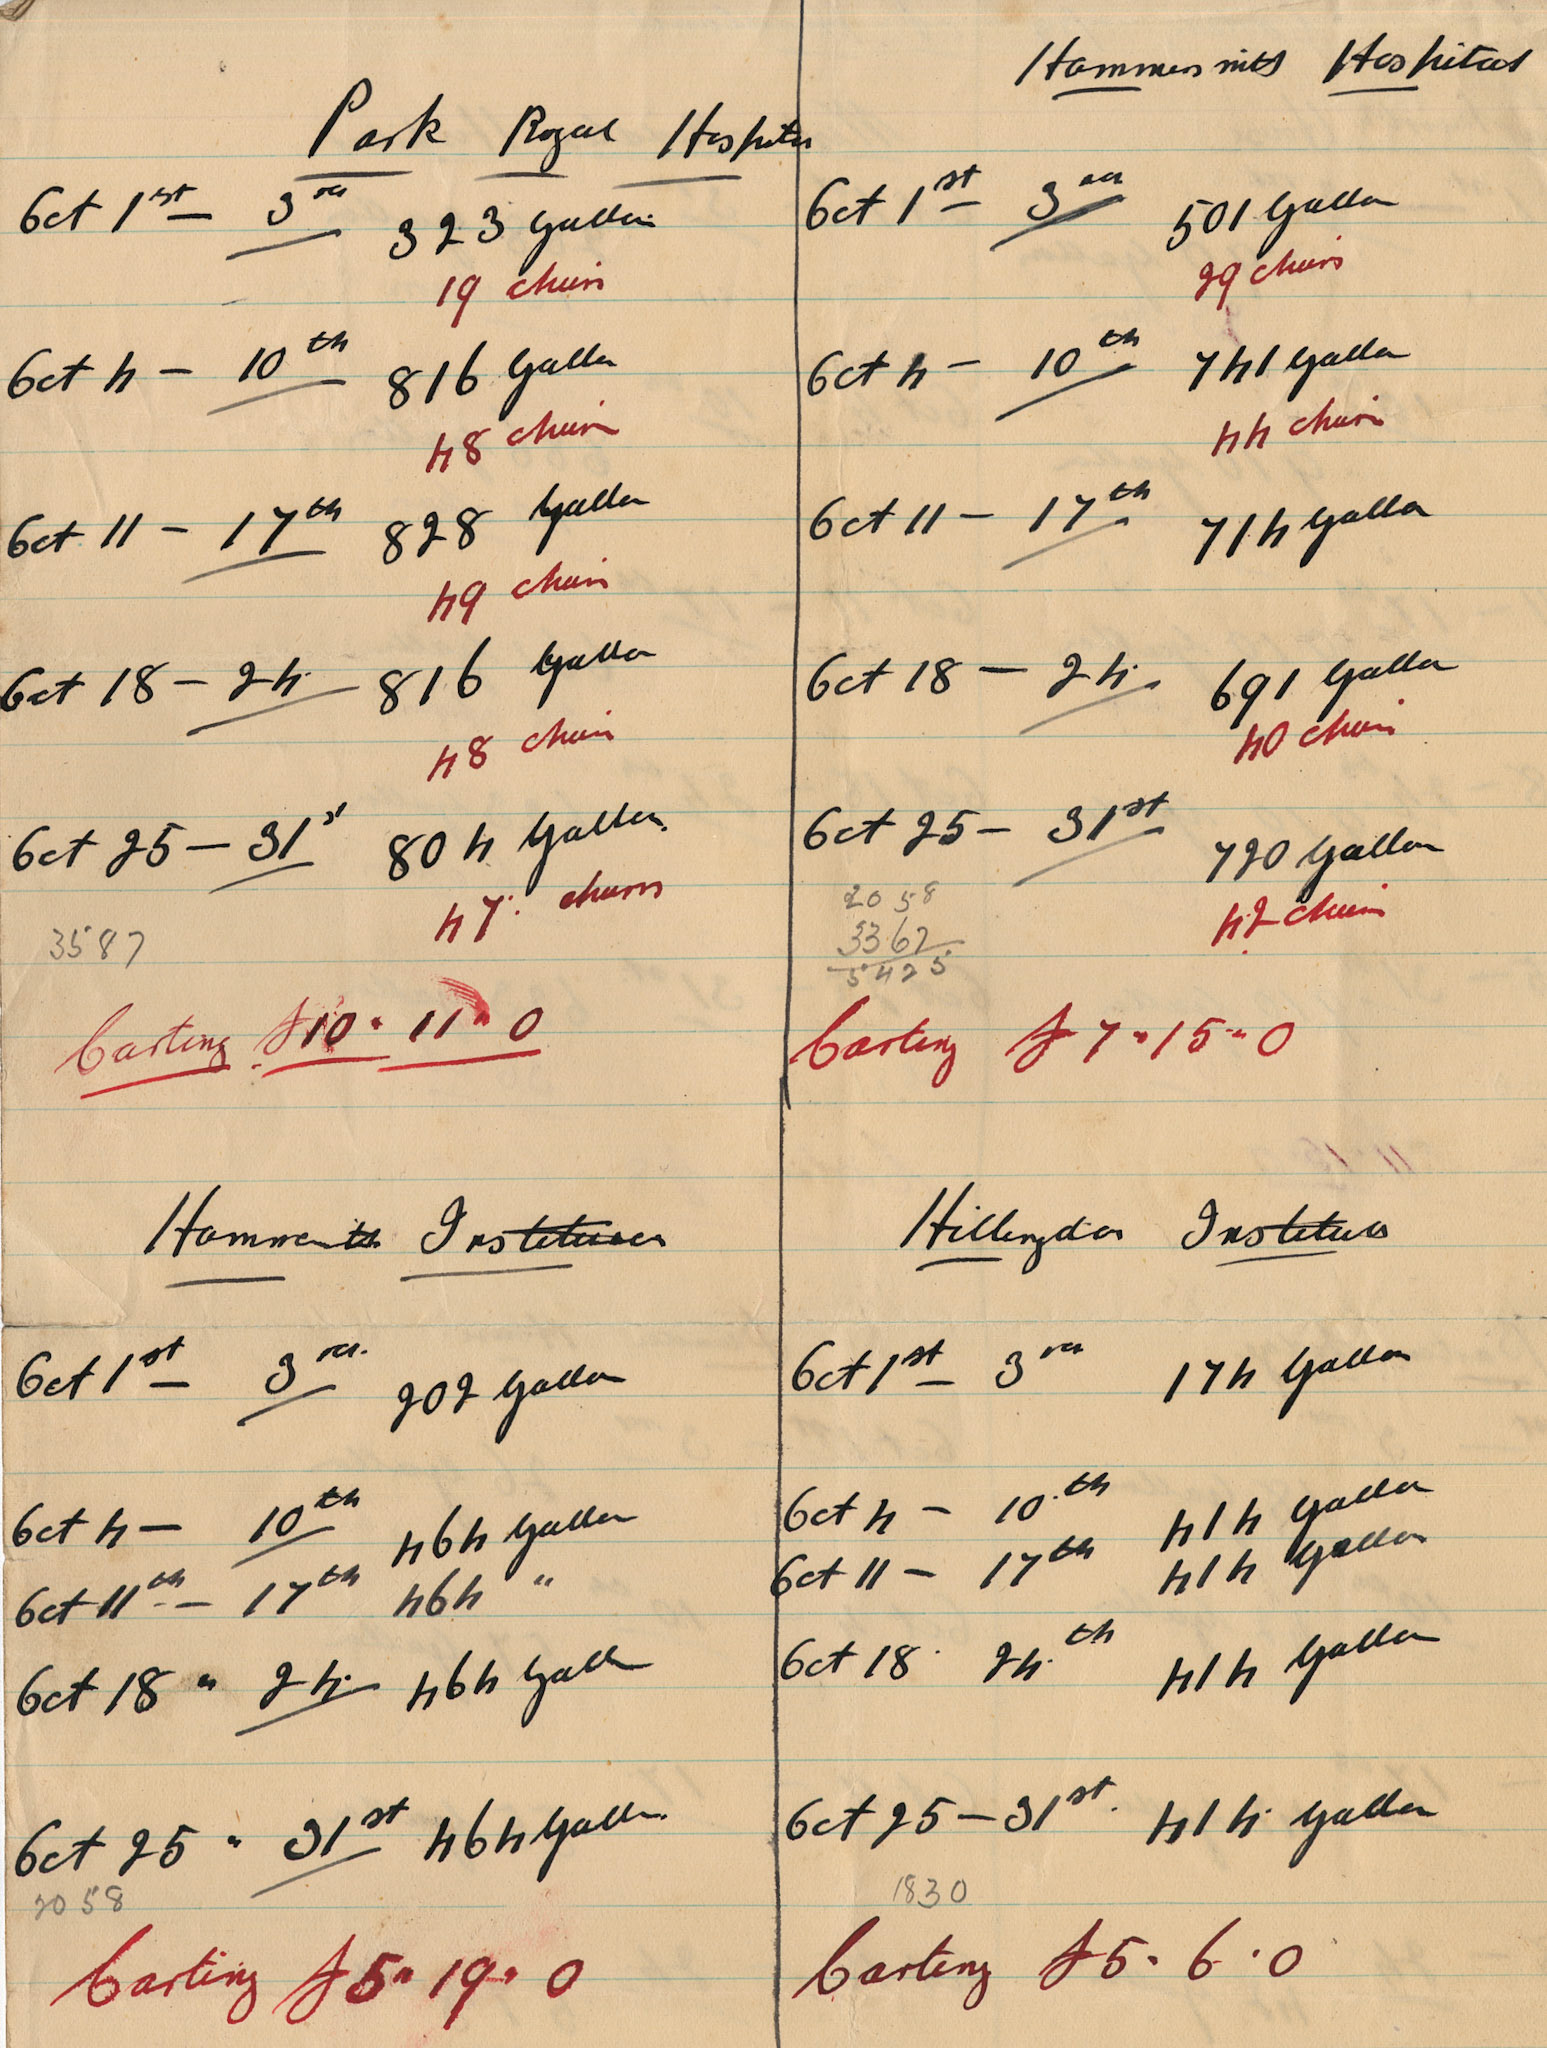 Park Royal Hospital
Oct 1st – 3rd 323 Gallon
19 churns
Oct 4 – 10th 816 Gallon
48 churns
Oct 11 – 17th 828 Gallon
49 churns
Oct 18 – 24. 816 Gallon
48 churns
Oct 25 – 31st 804 Gallon
47 churns
3587
Carting £10 " 11 " 0
Hammersmith Hospital
Oct 1st – 3rd 501 Gallon
29 churns
Oct 4 – 10th 741 Gallon
44 churns
Oct 11 – 17th 714 Gallon
Oct 18 – 24. 691 Gallon
40 churns
Oct 25 – 31st 720 Gallon
42 churns
2058
3367
5425
Carting £7 " 15 " 0
Hammersmith Institution
Oct 1st – 3rd. 202 Gallon
Oct 4 – 10th 464 Gallon
Oct 11th – 17th 464 "
Oct 18 " 24. 464 Gallon
Oct 25 " 31st 464 Gallon
2058
Carting £5 " 19 " 0
Hillingdon Institution
Oct 1st – 3rd 174 Gallon
Oct 4 – 10th 414 Gallon
Oct 11 – 17th 414 Gallon
Oct 18 24th 414 Gallon
Oct 25 – 31st. 414 Gallon
1830
Carting £5 " 6 " 0